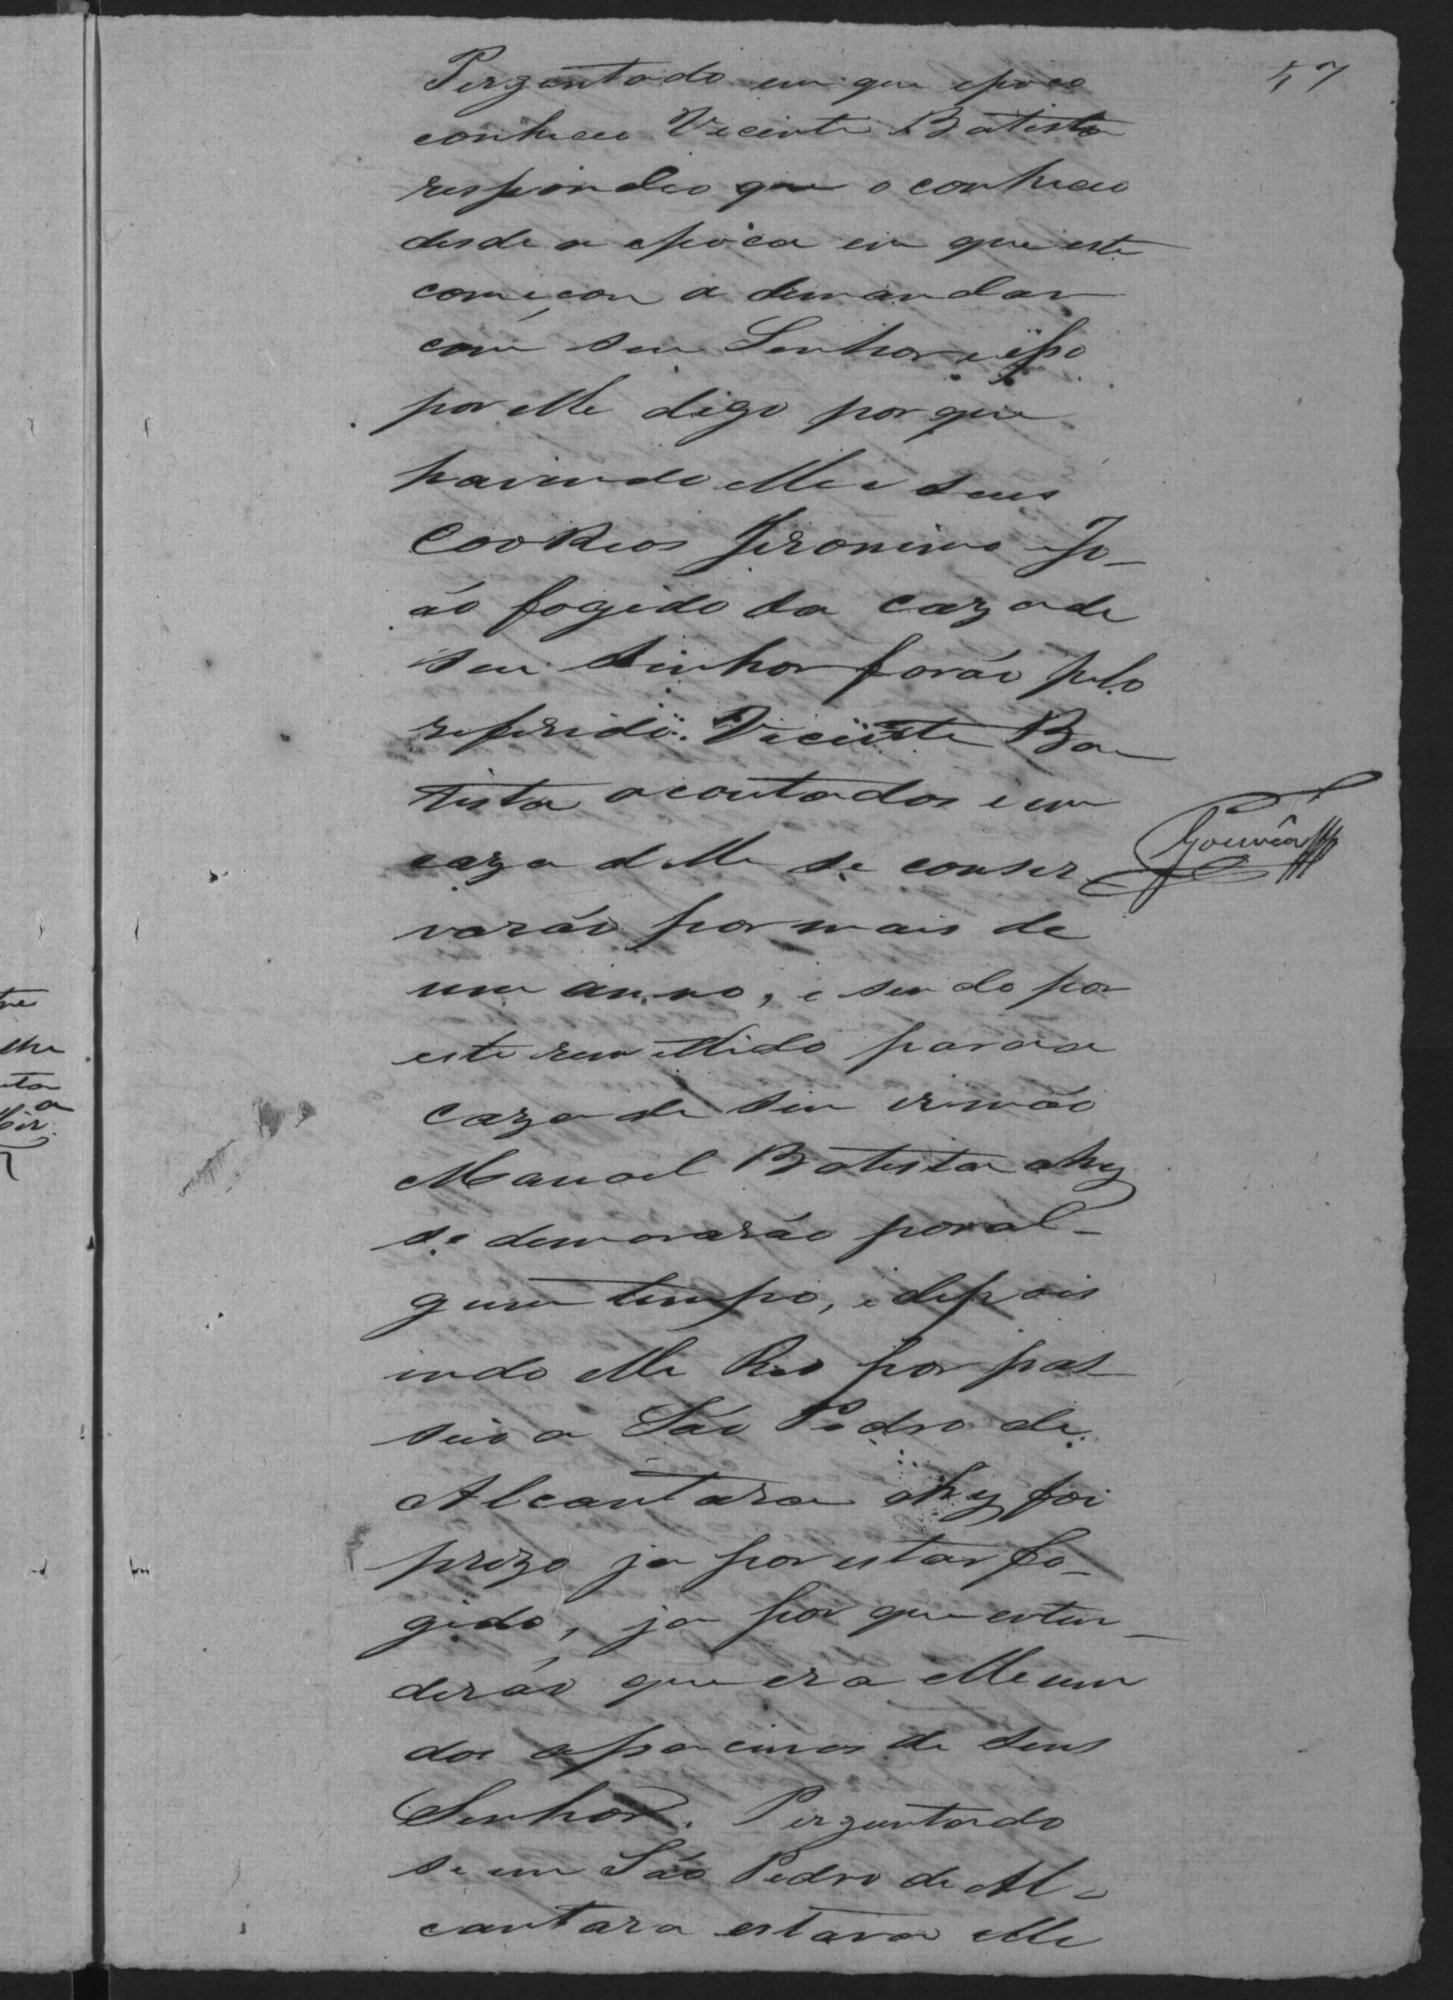 57
Perguntado em que epoca
conheceo Vicente Batista
respondeo que o conheceo
desde a epoca em que este
começou a demandar
com seu Senhor e isso
por elle digo por que
havendo elle e seus
CooReos Jeronimo e Jo-
ão fogido da caza de
seu Senhor forão pelo
referido Vicente Ba-
tista acoutados e em
caza delle se conser
Gouvêa
varão por mais de
um anno, e sendo por
este remettido para a
caza de seu irmão
Manoel Batista ahy
se demorarão por al-
gum tempo, e depois
indo elle Reo por pas-
seio a São Pedro de
Alcantara ahy foi
prezo ja por estar fo-
gido, ja por que enten-
derão que era elle um
dos assacinos de seus
Senhor. Perguntado
se em São Pedro de Al-
cantara estava elle